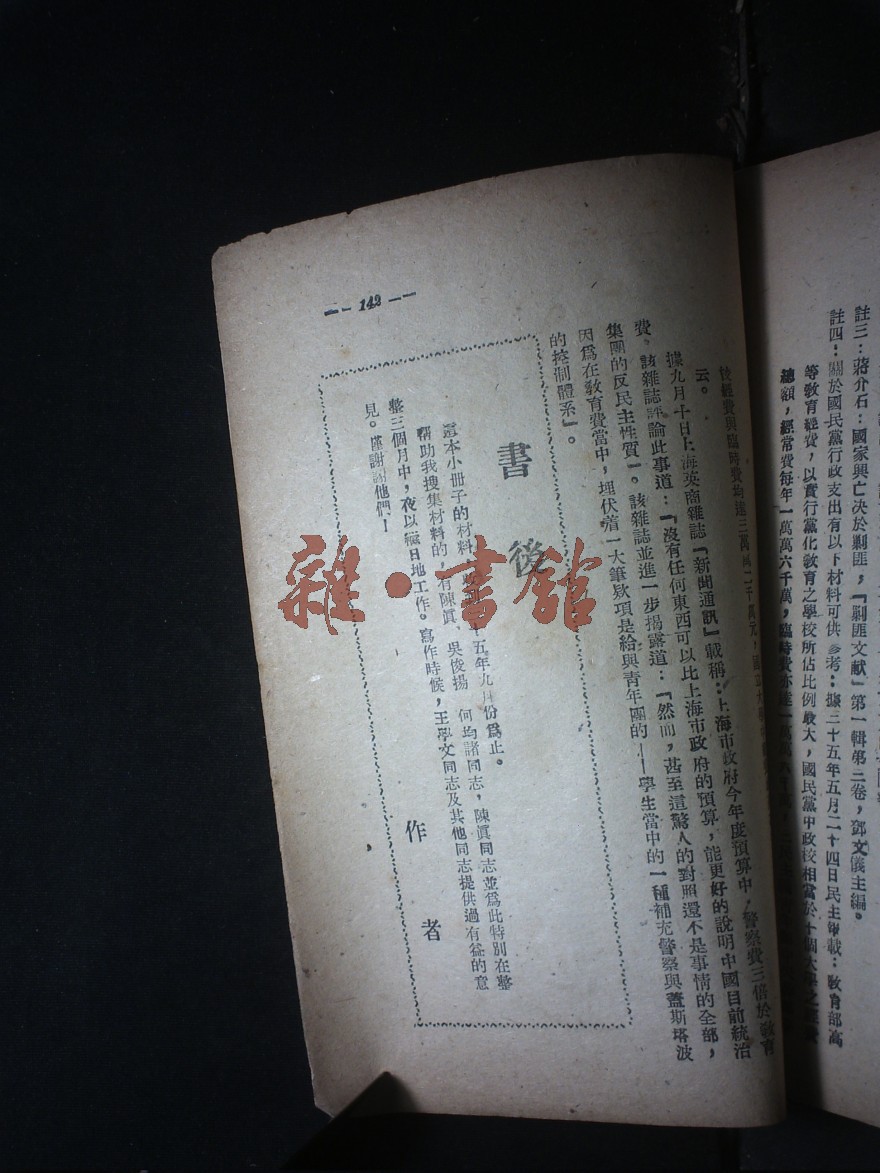 註三：蔣介石：國家興亡决於剿匪，『剿匪文獻』第一輯第二卷，鄧文儀主編。
註四：關於國民黨行政支出有以下材料可供參考：據三十五年五月二十四日民主報載：敎育部高
等敎育經費，以實行黨化敎育之學校所佔比例最大，國民黨中政校相當於十個大學之經費
總額，經常費每年一萬萬六千萬，臨時費亦達一萬萬六千萬
校經費與臨時費均達三萬萬二千萬元，
云。
據九月十日上海英商雜誌『新聞通訊』載稱：上海市政府今年度預算中，警察費三倍於敎育
費。該雜誌評論此事道：『沒有任何東西可以比上海市政府的預算，能更好的說明中國目前統治
集團的反民主性質』。該雜誌並進一步揭露道：『然而，甚至這驚人的對照還不是事情的全部，
因爲在敎育費當中，埋伏着一大筆欵項是給與靑年團的——學生當中的一種補充警察與蓋斯塔波
的控制體系』。
書後
這本小册子的材料，五年九月份爲止。
帮助我搜集材料的，有陳眞、吳俊揚、何均諸同志，陳眞同志並爲此特別在整
整三個月中，夜以繼日地工作。寫作時候，王學文同志及其他同志提供過有益的意
見。謹謝謝他們！
作者
——142——
雜·書館